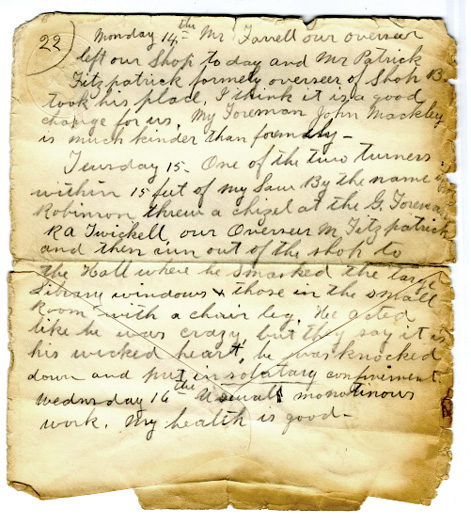 22
Monday 14th Mr Farrell our overseer
left our Shop to day and Mr Patrick
Fitzpatrick formely overseer of Shop B.
took his place. I think it is a good
change for us. My Foreman John Mackley
is much kinder than foemdly -
Teursday 15 - One of the two turners
within 15 feet of my Saw By the name of
Robinson threw a chizel at the G. Foreman
RA Twickell, our Overseer M, Fitzpatrick
and then run out of the shop to
the Hall where he smarked the large
Library windows & those in the small
Room with a chair leg. He acted
like he was crazy but they say it is
his wicked heart. he was knocked
down and put in solatary confinement
Wednsday 16the Usual monotinous
work. My health is good -